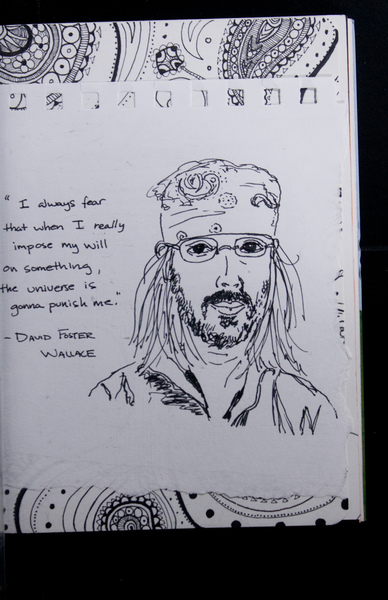 "I always fear
that when I really
impose my will
on something,
the universe is
gonna punish me."
- DAVID FOSTER
WALLACE